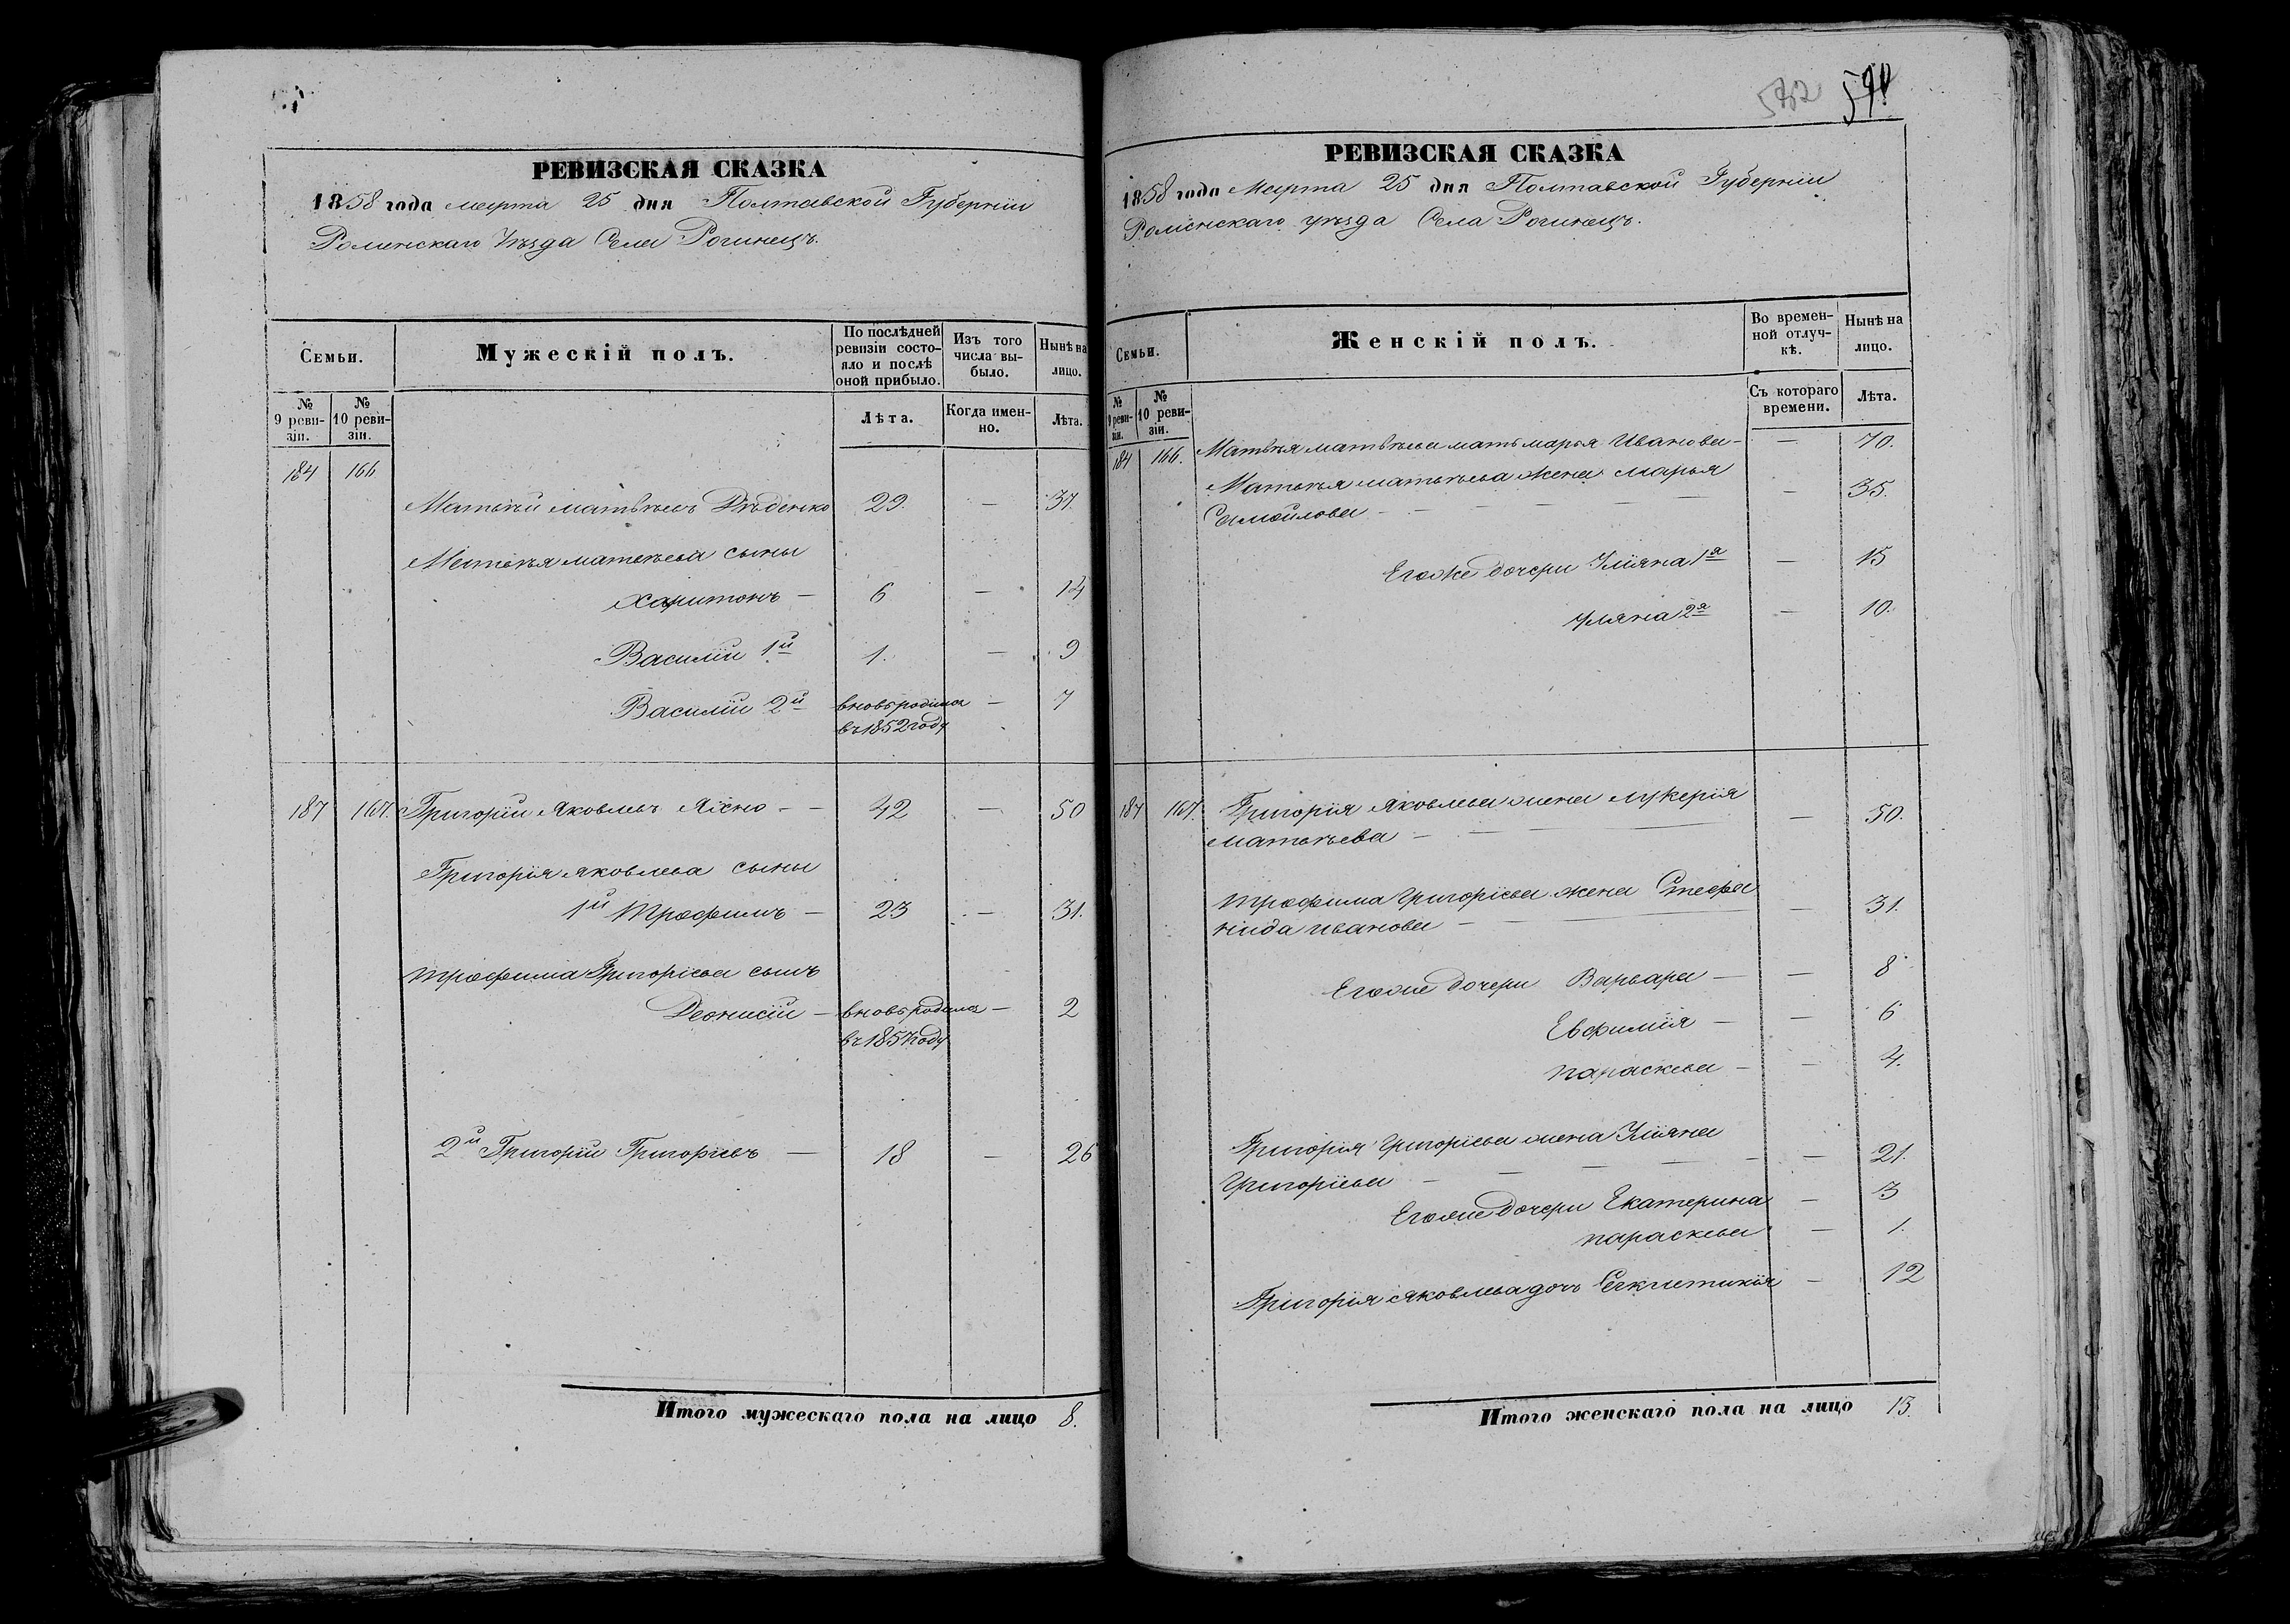 РЕВИЗСКАЯ СКАЗКА
1858 года марта 25 дня Полтавской Губернiи
Роменскаго Уѣзда Села Рогинецъ.
Семьи.
Мужескій полъ.
По послѣдней ревизіи состояло и послѣ оной прибыло.
Изъ того числа выбыло.
Нынѣ на лицо.
№ 9 ревизіи.
№ 10 ревизіи.
Лѣта.
Когда именно.
Лѣта.
184 166
Матвѣй матвѣевъ Дѣденко 29. — 37.
Матвѣя матвѣева сыны
Харитонъ — 6 — 14
Василiй 1й 1. — 9
Василiй 2й вновь родился — 7
въ 1852 году
187 167. Григорiй Яковлевъ — — 42 — 50
Григорiя яковлева сыны
1й Трофимъ — 23 — 31.
трофима Григорiева сынъ
Деонисiй — вновь родился — 2
въ 1857 году
2й Григорiй Григорiевъ — 18 — 26
Итого мужескаго пола на лицо 8.
РЕВИЗСКАЯ СКАЗКА
1858 года Марта 25 дня Полтавской Губернiи
Роменскаго уѣзда Села Рогинецъ.
Семьи.
Женскій полъ.
Во временной отлучкѣ.
Нынѣ на лицо.
№ 9 ревизіи.
№ 10 ревизіи.
Съ котораго времени.
Лѣта.
184 166. Матвѣя матвѣева мать марья Иванова — — 70.
Матвѣя матвѣева жена марья
Самойлова — — — — — — 35.
Егоже дочери Улiяна 1я — 15
Уляна 2я — 10.
187 167. Григорiя Яковлева жена лукерiя
матвѣева — — — — 50.
трофима Григорiева жена Стефа
нида иванова — — — 31.
Егоже дочери Варвара — — 8
Евфимiя — — 6
параскева — — 4.
Григорiя Григорiева жена Улiяна
Григорiева — — — — — — 21.
Егоже дочери Екатерина — 3
параскева — 1.
Григорiя яковлева дочь — 12
Итого женскаго пола на лицо 13.